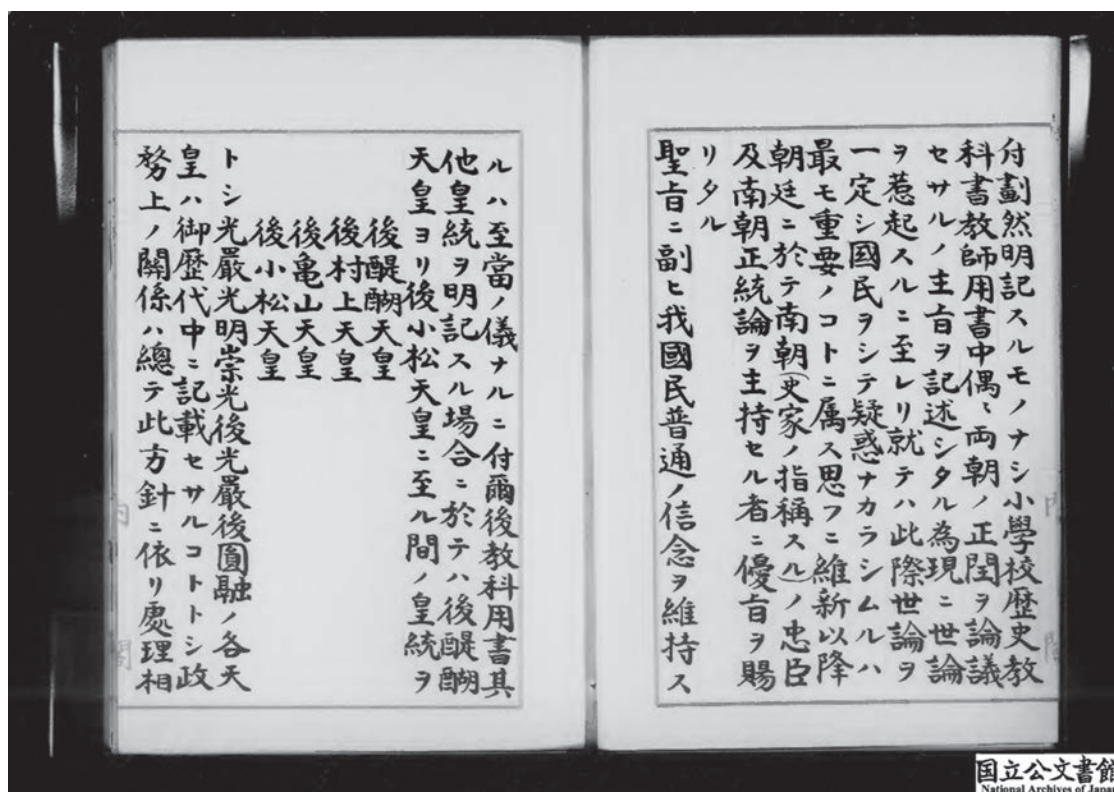 付劃然明記スルモノナシ小學校歴史教
科書教師用書中偶〻両朝ノ正閏ヲ論議
セサルノ主旨ヲ記述シタル為現ニ世論
ヲ惹起スルニ至レリ就テハ此際世論ヲ
一定シ國民ヲシテ疑惑ナカラシムルハ
最モ重要ノコトニ属ス思フニ維新以降
朝廷ニ於テ南朝(史家ノ指稱スル)ノ忠臣
及南朝正統論ヲ主持セル者ニ優旨ヲ賜
リタル
聖旨ニ副ヒ我國民普通ノ信念ヲ維持ス
ルハ至當ノ儀ナルニ付爾後教科用書其
他皇統ヲ明記スル場合ニ於テハ後醍醐
天皇ヨリ後小松天皇ニ至ル間ノ皇統ヲ
後醍醐天皇
後村上天皇
後亀山天皇
後小松天皇
トシ光嚴光明崇光後光嚴後圓融ノ各天
皇ハ御歴代中ニ記載セサルコトトシ政
務上ノ關係ハ總テ此方針ニ依リ處理相
内閣
国立公文書館
National Archives of Japan